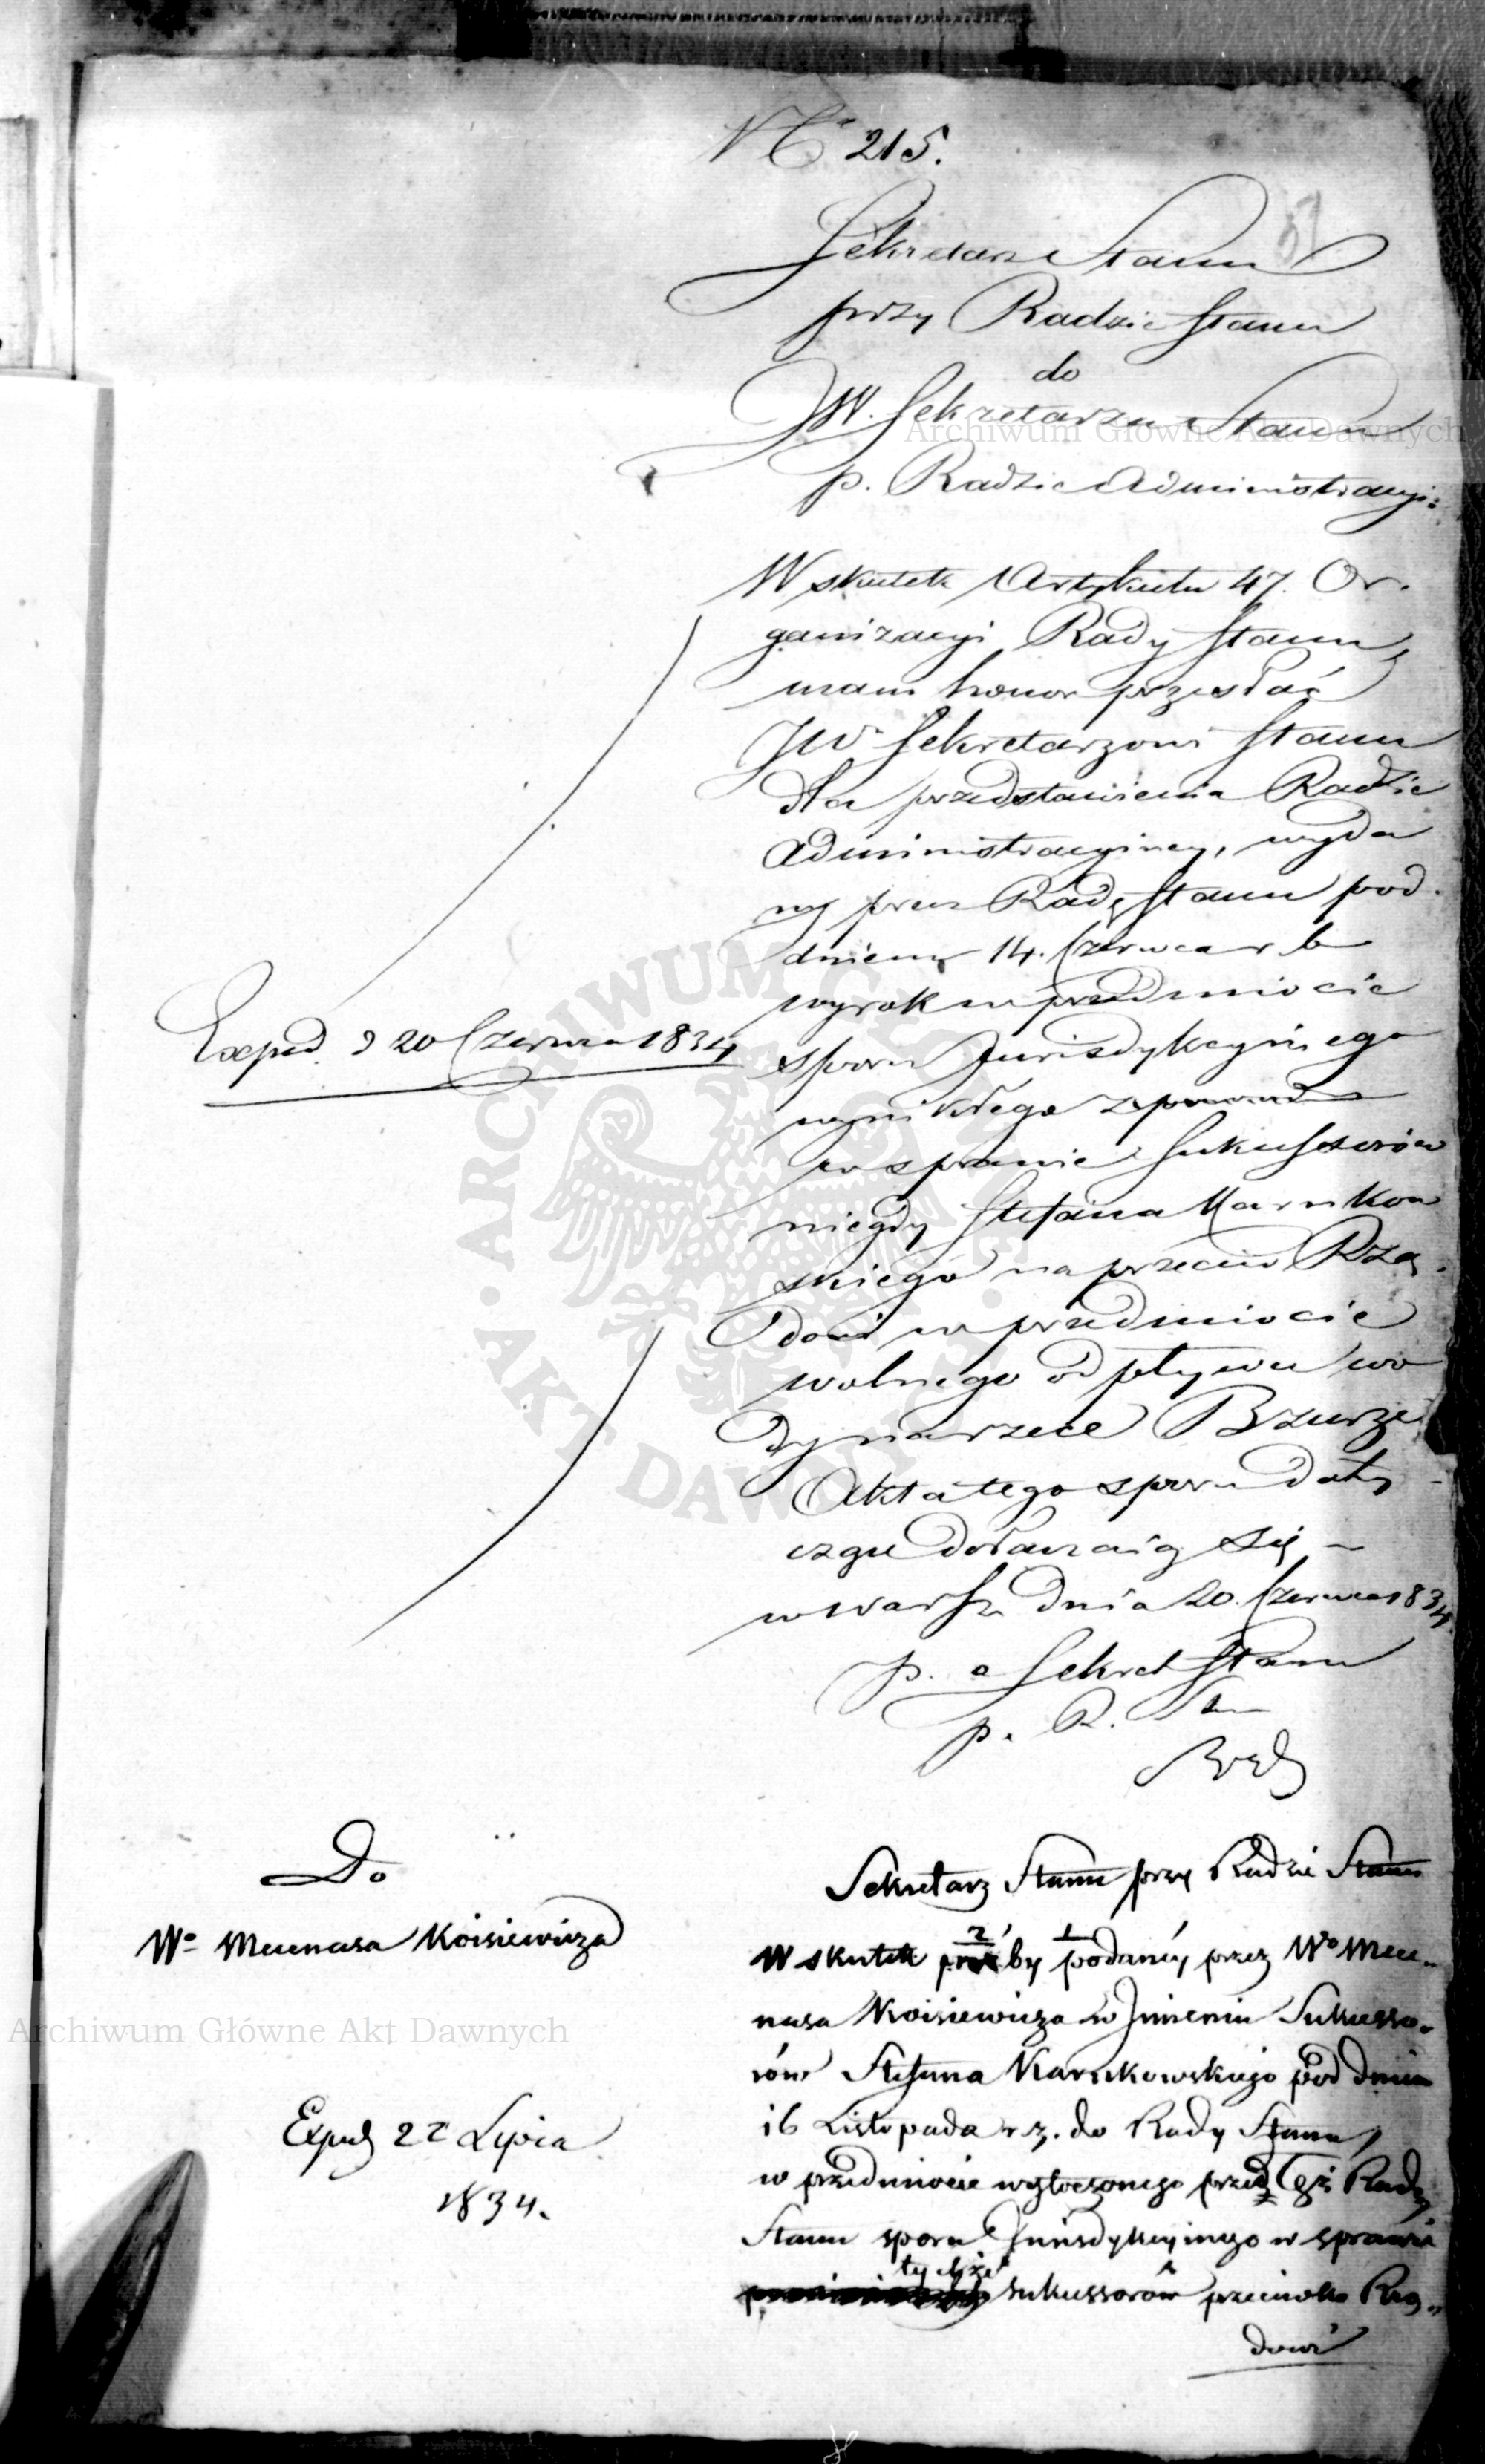 N° 215.
Sekretarz Stanu
przy Radzie Stanu
do
JW. Sekretarza Stanu
p. Radzie Administracyi:
W skutek Artykułu 47. Or.
ganizacyi Rady Stanu,
mam honor przesłać
JW. Sekretarzowi Stanu
dla przedstawienia Radzie
Administracyiney, wyda
ny przez Radę Stanu pod.
dniem 14. Czerwca r b
wyrok w przedmiocie
sporu Jurisdykcyinego
wynikłego
w sprawie Sukcessorów
niegdy Stefana Karnkow
skiego naprzeciw Rzą.
dowi w przedmiocie
wolnego odpływu wo
dy na rzece Bzurze
Akta tego sporu doty
czące dołączaią się –
w Warsz. dnia 20. Czerwca 1834
p. o Sekret Stanu
p. R. Stu
Exped. d 20 Czerwca 1834
Do
Wo Mecenasa Koisiewicza
Exped 22 Lipca
1834.
Sekretarz Stanu przy Radzie Stanu
2 1
W skutek prośby podaney przez Wo Mece-
nasa Koisiewicza w Jmieniu Sukcesso-
rów Stefana Karnkowskiego pod dniem
16 Listopada r. z. do Rady Stanu,
w przedmiocie wytoczonego przed Tęż Radę
Stanu sporu Jurisdykcyinego w sprawie
tychże
Sukcessorów przeciwko Rzą-
dowi
Archiwum Główne Akt Dawnych
Archiwum Główne Akt Dawnych
ARCHIWUM GŁÓWNE AKT DAWNYCH